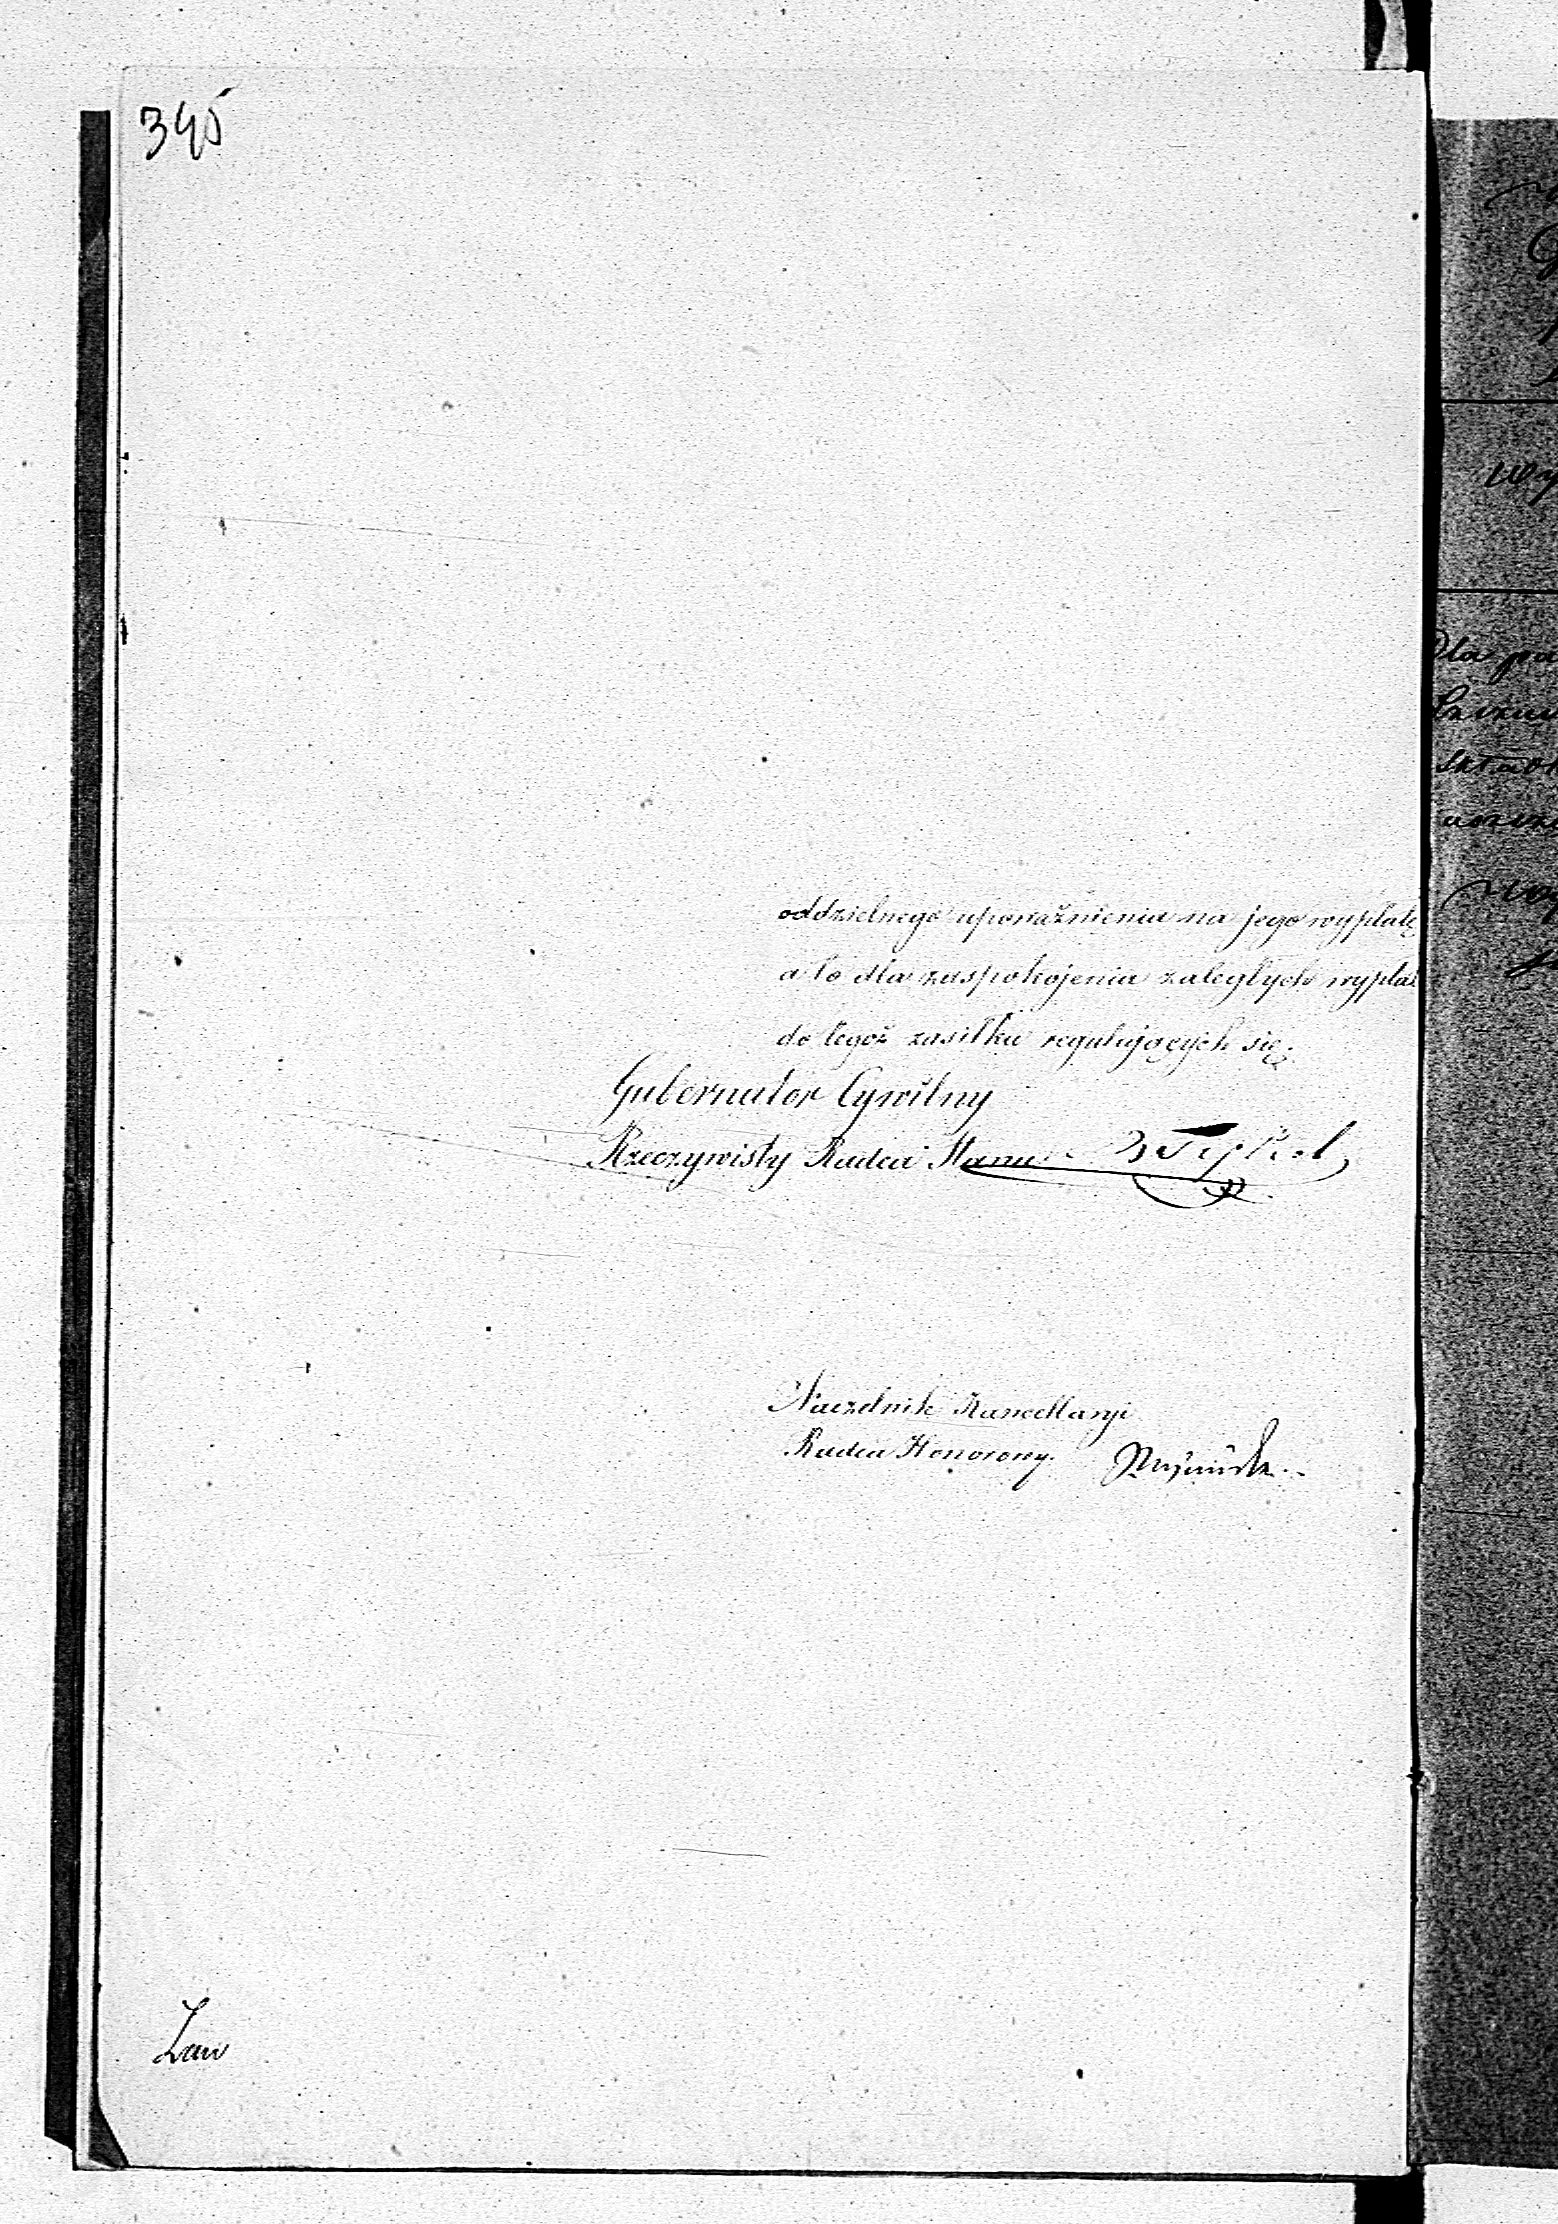 345
oddzielnego upoważnienia na jego wypłatę
a to dla zaspokojenia zaległych wypłat
do tegoż zasiłku regulujących się.
Gubernator Cywilny
Rzeczywisty Radca Stanu
Naczelnik Kancellaryi
Radca Honorowy.